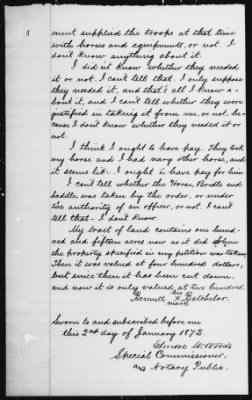 8
ment supplied the troops at that time
with horses and equipments, or not. I
don't know anything about it.
I did not know whether they needed
it or not. I can't tell that. I only suppose
they needed it, and that's all I know a-
bout it, and I can't tell whether they were
justified in taking it from me, or not, be-
cause I don't know whether they needed it or
not.
I think I ought to have pay. They took
my horse and I had nary other horse, and
it seems like I ought to have pay for him
I can't tell whether the Horse, Bridle and
Saddle was taken by the order, or under
the authority of an officer, or not. I can't
tell that - I don't know.
My tract of land contains one hun-
dred and fifteen acres now as it did when
the property specified in my petition was taken,
Then it was valued at four hundred dollars,
but since then it has been cut down,
and now it is only valued at two hundred.
his
Bennett X Batchelor.
mark
Sworn to and subscribed before me
this 2nd day of January 1872.
W. Woods
Special Commissioner,
and Notary Public.